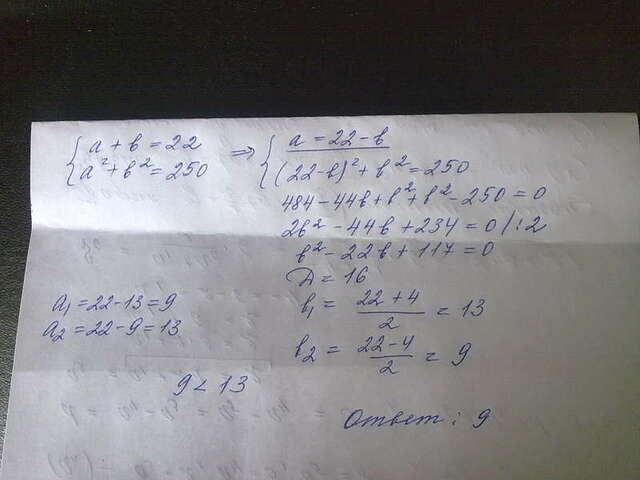 { a + b = 22
a² + b² = 250
=> { a = 22 - b
(22-b)² + b² = 250
484 - 44b + b² + b² - 250 = 0
2b² - 44b + 234 = 0 /:2
b² - 22b + 117 = 0
D = 16
b₁ = (22 + 4)/2 = 13
b₂ = (22 - 4)/2 = 9
a₁ = 22-13 = 9
a₂ = 22-9 = 13
9 < 13
Ответ: 9